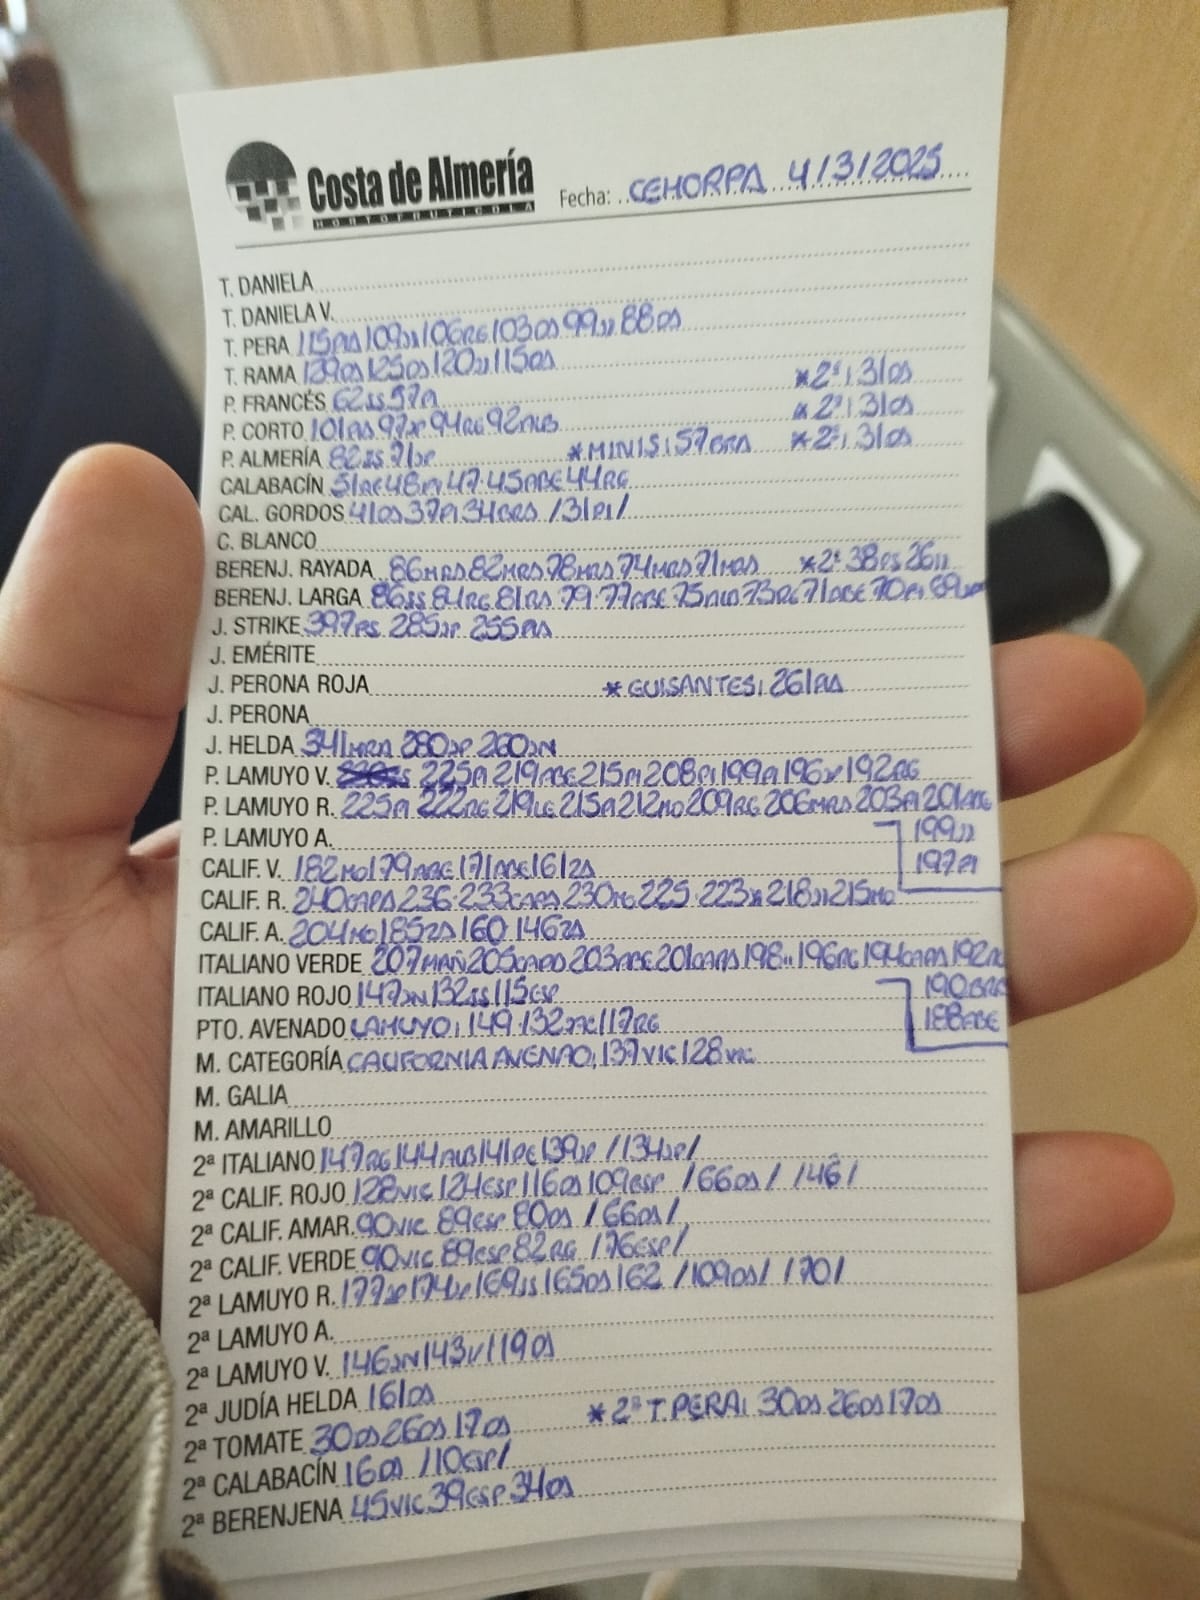 Costa de Almería
HORTOFRUTICOLA
Fecha: CEHORPA 4/3/2025
T. DANIELA
T. DANIELA V.
T. PERA 115 109 106RG 103DS 99JJ 88DS
T. RAMA 139DS 125DS 120JJ 115DS *2ª: 31DS
P. FRANCÉS 62SS 57PI *2ª: 31DS
P. CORTO 101 97JP 94RG 92 *2ª: 31DS
P. ALMERÍA 82SS 71JP *MINIS: 57BRA
CALABACÍN 51 48 47·45ABE 44RG
CAL. GORDOS 41DS 37PI 34GRS /31PI/
C. BLANCO
BERENJ. RAYADA 86MRS 82MRS 78MRS 74MRS 71MRS *2ª 38 26
BERENJ. LARGA 86SS 84RG 81RA 79·77ABE 75 73RG 71ABE 70PI 69
J. STRIKE 397 285JP 255RA
J. EMÉRITE
J. PERONA ROJA *GUISANTES: 261RA
J. PERONA
J. HELDA 341MRA 280JP 260JN
P. LAMUYO V. 225PI 219ABE 215PI 208PI 199PI 196 192RG
P. LAMUYO R. 225PI 222RG 219LE 215PI 212MO 209RG 206MRS 203PI 201
P. LAMUYO A. 199JJ
CALIF. V. 182MO 179ABE 171ABE 161ZA 197PI
CALIF. R. 240CAPA 236·233CAPA 230 225·223 218JJ 215MO
CALIF. A. 204MO 185ZA 160·146ZA
ITALIANO VERDE 207MAÑ 205CAPA 203ABE 201CAPA 198 196RG 194CAPA 192
ITALIANO ROJO 147JN 132SS 115ESP 190
PTO. AVENADO LAMUYO: 149·132 117RG 188
M. CATEGORÍA CALIFORNIA AVENAO: 137VIC 128VIC
M. GALIA
M. AMARILLO
2ª ITALIANO 147RG 144 141 139JP /134JP/
2ª CALIF. ROJO 128VIC 124ESP 116DS 109ESP /66DS/ /46/
2ª CALIF. AMAR. 90VIC 89ESP 80DS /66DS/
2ª CALIF. VERDE 90VIC 89ESP 82RG /76ESP/
2ª LAMUYO R. 177JP 174 169SS 165DS 162 /109DS/ /70/
2ª LAMUYO A.
2ª LAMUYO V. 146JN 143 119DS
2ª JUDÍA HELDA 161DS
2ª TOMATE 30DS 26DS 17DS *2ª T.PERA: 30DS 26DS 17DS
2ª CALABACÍN 16DS /10ESP/
2ª BERENJENA 45VIC 39ESP 34DS